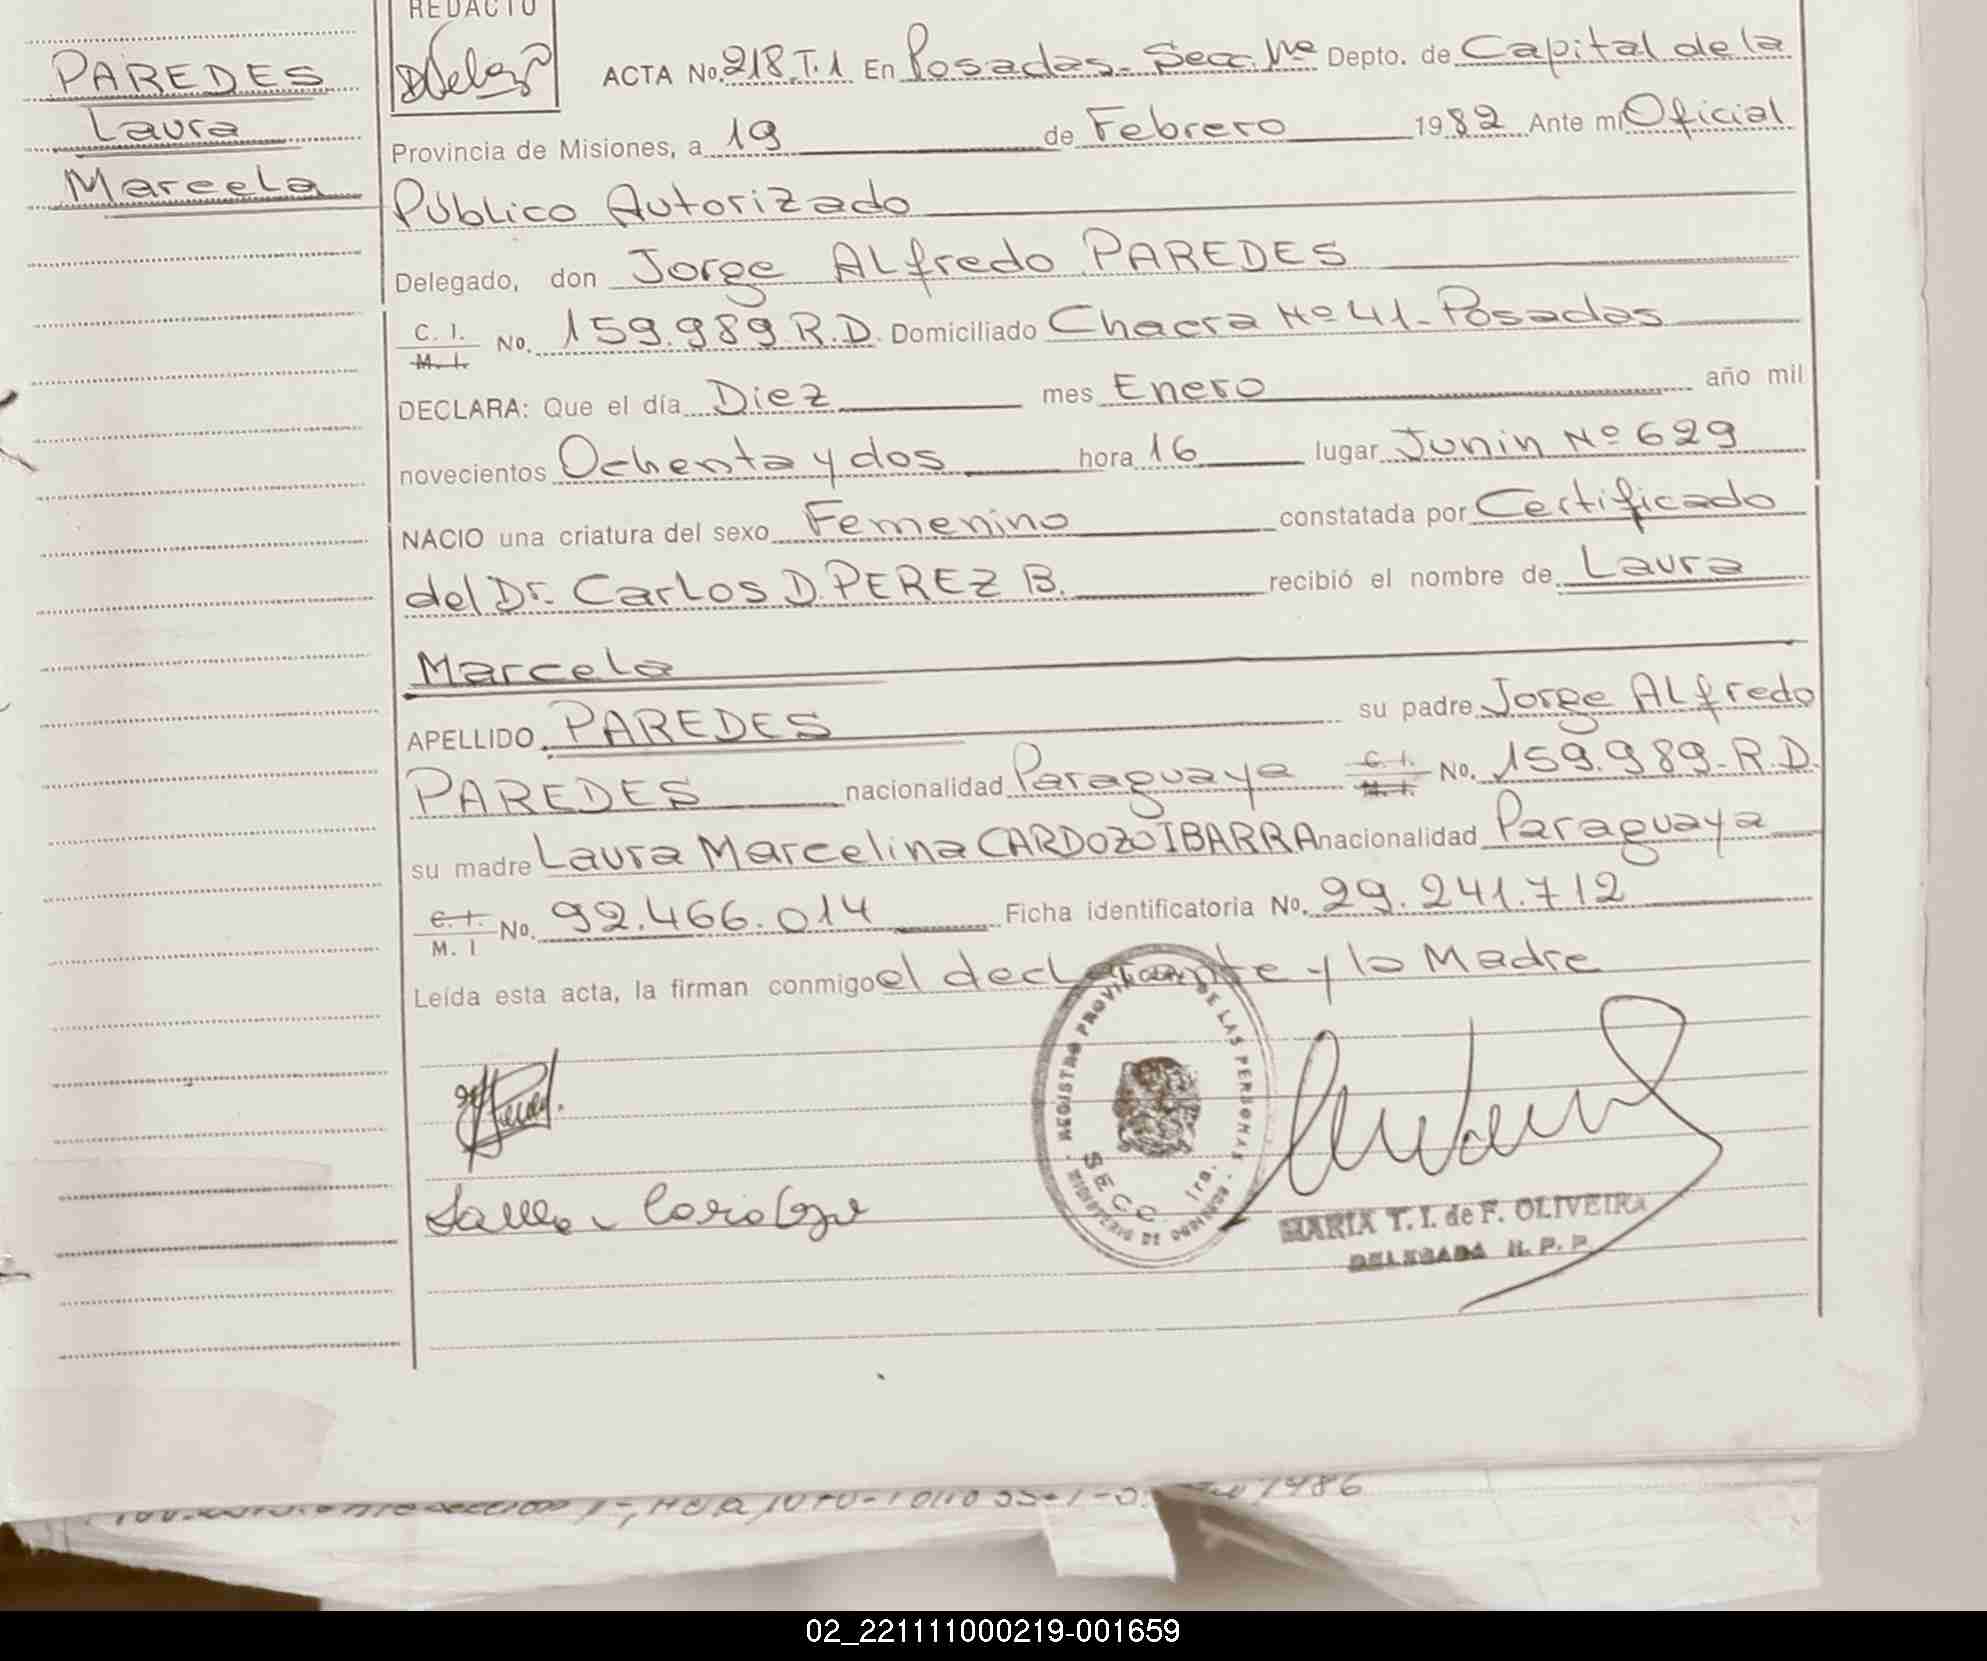 REDACTO
PAREDES
Laura
Marcela
ACTA No. 218 T.1 En Posadas - Secc. 1ra Depto. de Capital de la
Provincia de Misiones, a 19 de Febrero 1982 Ante mi Oficial
Público Autorizado
Delegado, don Jorge Alfredo PAREDES
C. I. No. 159.989 R.D. Domiciliado Chacra Nº 41 - Posadas
M. I.
DECLARA: Que el día Diez mes Enero año mil
novecientos Ochenta y dos hora 16 lugar Junin Nº 629
NACIO una criatura del sexo Femenino constatada por Certificado
del Dr. Carlos D. PEREZ B. recibió el nombre de Laura
Marcela
APELLIDO PAREDES su padre Jorge Alfredo
PAREDES nacionalidad Paraguaya C. I. M. I. No. 159.989 - R.D.
su madre Laura Marcelina CARDOZO IBARRA nacionalidad Paraguaya
C. I. No. 92.466.014 Ficha identificatoria No. 29.241.712
M. I
Leída esta acta, la firman conmigo el declarante y la Madre
REGISTRO PROVINCIAL DE LAS PERSONAS
SECC. 1ra.
MINISTERIO DE GOBIERNO
MARIA T. I. de F. OLIVEIRA
DELEGADA R. P. P.
1986
02_221111000219-001659